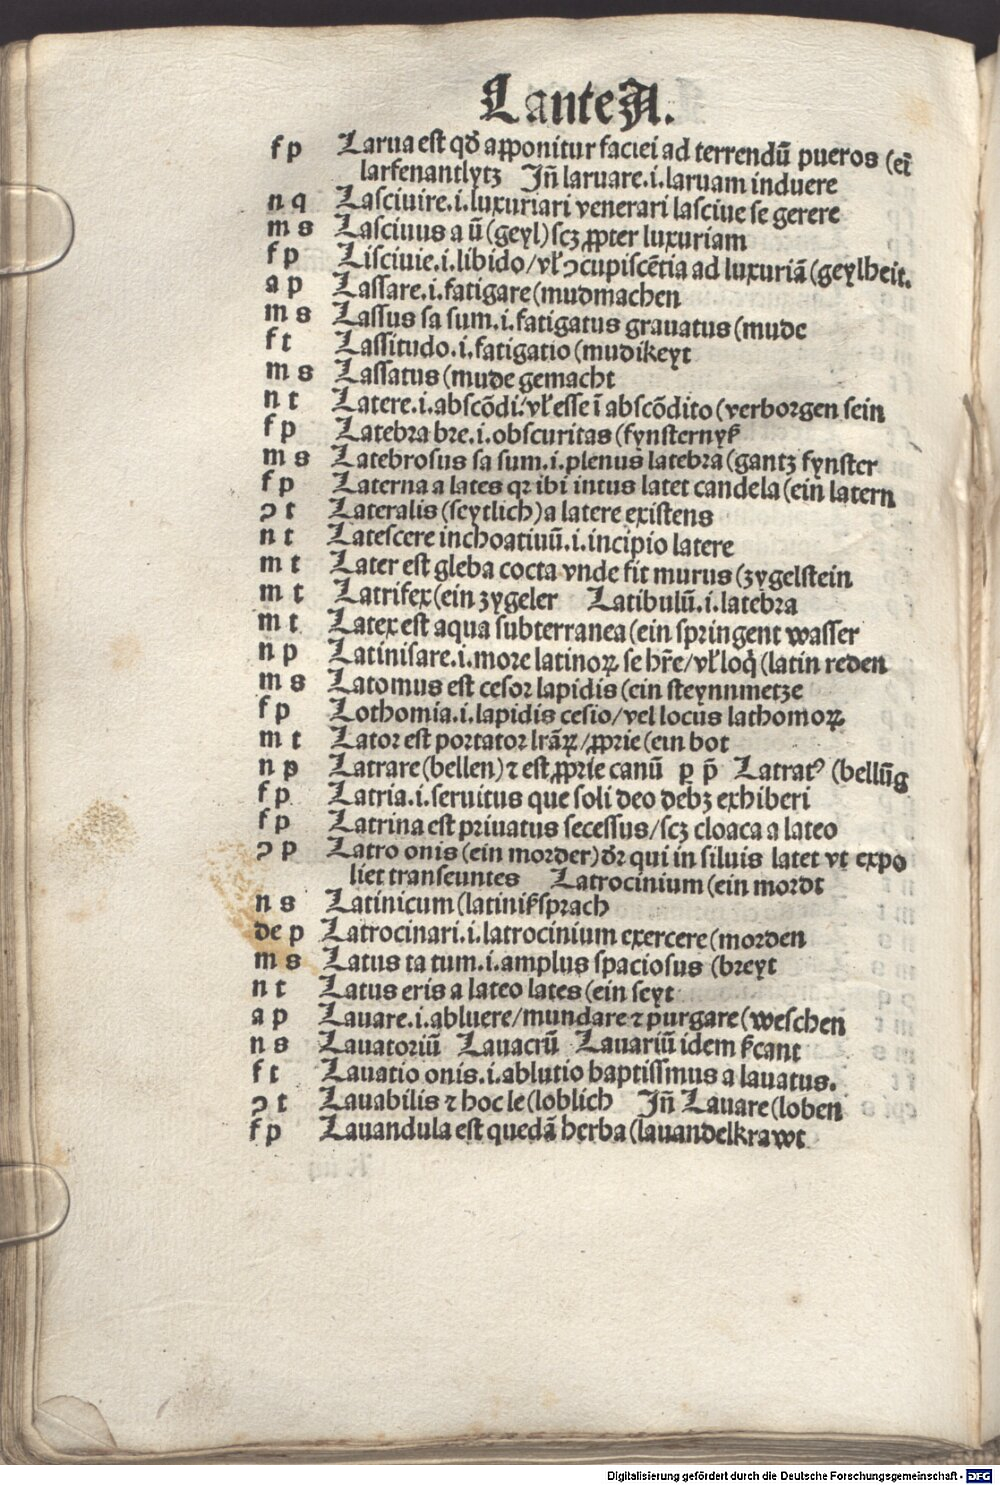 Lante A.
f p Larua est qð apponitur faciei ad terrendū pueros (ei
larfenantlytz Jñ laruare.i.laruam induere
n q Lasciuire.i.luxuriari venerari lasciue se gerere
m s Lasciuus a ū (geyl) scꝫ ꝓpter luxuriam
f p Lisciuie.i.libido/vł ↄcupiscētia ad luxuriā (geylheit.
a p Lassare.i.fatigare (mudmachen
m s Lassus sa sum.i.fatigatus grauatus (mude
f t Lassitudo.i.fatigatio (mudikeyt
m s Lassatus (mude gemacht
n t Latere.i.abscōdi/vł esse ī abscōdito (verborgen sein
f p Latebra bre.i.obscuritas (fynsternyß
m s Latebrosus sa sum.i.plenus latebra (gantz fynster
f p Laterna a lates qꝛ ibi intus latet candela (ein latern
ↄ t Lateralis (seytlich) a latere existens
n t Latescere inchoatiuū.i.incipio latere
m t Later est gleba cocta vnde fit murus (zygelstein
m t Latrifex (ein zygeler Latibulū.i.latebra
m t Latex est aqua subterranea (ein springent wasser
n p Latinisare.i.more latinoꝝ se hr̄e/vł loq̇ (latin reden
m s Latomus est cesor lapidis (ein steynnmetze
f p Lothomia.i.lapidis cesio/vel locus lathomoꝝ
m t Lator est portator lrāꝝ/ꝓprie (ein bot
n p Latrare (bellen) ⁊ est ꝓprie canū ꝑ p̄ Latratꝰ (bellūg
f p Latria.i.seruitus que soli deo debꝫ exhiberi
f p Latrina est priuatus secessus/scꝫ cloaca a lateo
ↄ p Latro onis (ein morder) ðr qui in siluis latet vt expo
liet transeuntes Latrocinium (ein mordt
n s Latinicum (latinißsprach
de p Latrocinari.i.latrocinium exercere (morden
m s Latus ta tum.i.amplus spaciosus (breyt
n t Latus eris a lateo lates (ein seyt
a p Lauare.i.abluere/mundare ⁊ purgare (weschen
n s Lauatoriū Lauacrū Lauariū idem ßcant
f t Lauatio onis.i.ablutio baptissmus a lauatus.
ↄ t Lauabilis ⁊ hoc le (loblich Jñ Lauare (loben
f p Lauandula est quedā herba (lauandelkrawt
Digitalisierung gefördert durch die Deutsche Forschungsgemeinschaft - DFG